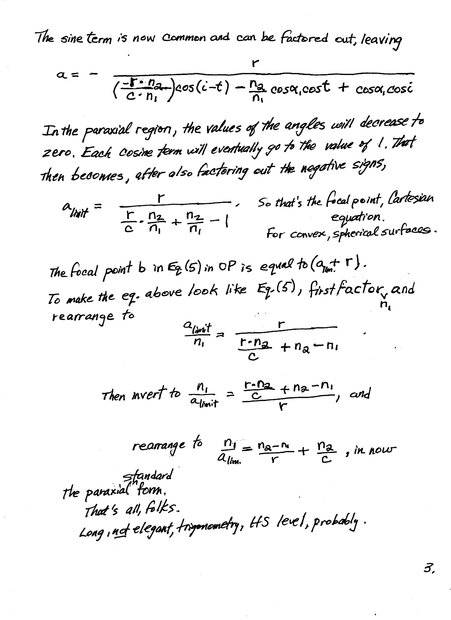 The sine term is now common and can be factored out, leaving
a = - r / ((-r·n₂ / c·n₁)cos(i-t) - n₂/n₁ cosα,cost + cosα,cosi)
In the paraxial region, the values of the angles will decrease to
zero. Each cosine term will eventually go to the value of 1. That
then becomes, after also factoring out the negative signs,
a_limit = r / (r/c · n₂/n₁ + n₂/n₁ - 1) . So that's the focal point, Cartesian
equation.
For convex, spherical surfaces.
The focal point b in Eq.(5) in OP is equal to (a_lim + r).
To make the eq. above look like Eq.(5), first factor n₁ and
rearrange to
a_limit/n₁ = r / (r·n₂/c + n₂ - n₁) .
Then invert to n₁/a_limit = (r·n₂/c + n₂ - n₁) / r , and
rearrange to n₁/a_lim. = (n₂-n₁)/r + n₂/c , in now
the paraxial standard form.
That's all, folks.
Long, not elegant, trigonometry, HS level, probably.
3.